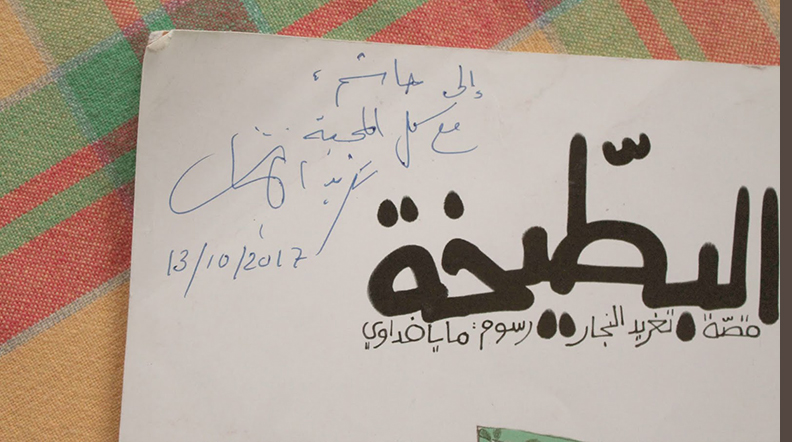 إلى هاشم،
مع كل المحبة
تغريد النجار
13/10/2017
البطّيخة
قصّة: تغريد النجار رسوم: مايا فداوي